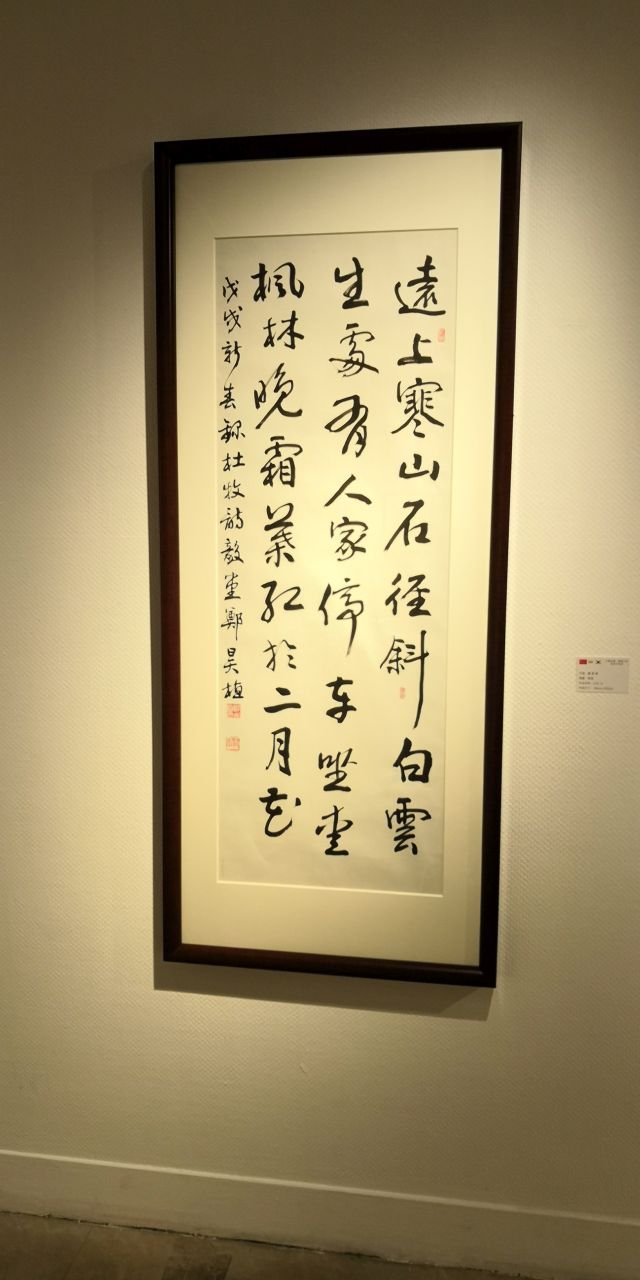 遠上寒山石徑斜白雲
生處有人家停車坐愛
楓林晚霜葉紅於二月花
戊戌新春錄杜牧詩毅堂鄭昊植